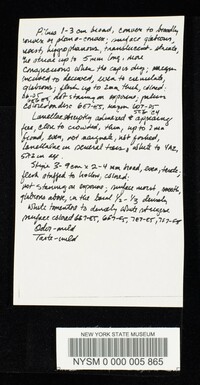 Pileus 1-3 cm broad, convex to broadly
convex or plano-convex; surface glabrous,
moist, hygrophanous, translucent-striate,
the striae up to 5 mm long, more
conspicuous when the cap is dry; margin
incurved to decurved, even to crenulate,
glabrous; flesh up to 2 mm thick, colored:
not staining on exposure,
Lamellae abruptly adnexed appearing
free, close to crowded, thin, up to 2 mm
broad, even, not marginate, not forked,
lamellulae in several tiers, white to
Stipe 3-9 cm x 2-4 mm broad, even, terete,
flesh stuffed to hollow, colored:
not staining on exposure; surface moist, smooth,
glabrous above, on the basal 1/2 - 1/3 densely
white tomentose to densely white strigose
surface colored
Odor-mild
Taste-mild
NEW YORK STATE MUSEUM
NYSM 0 000 005 865